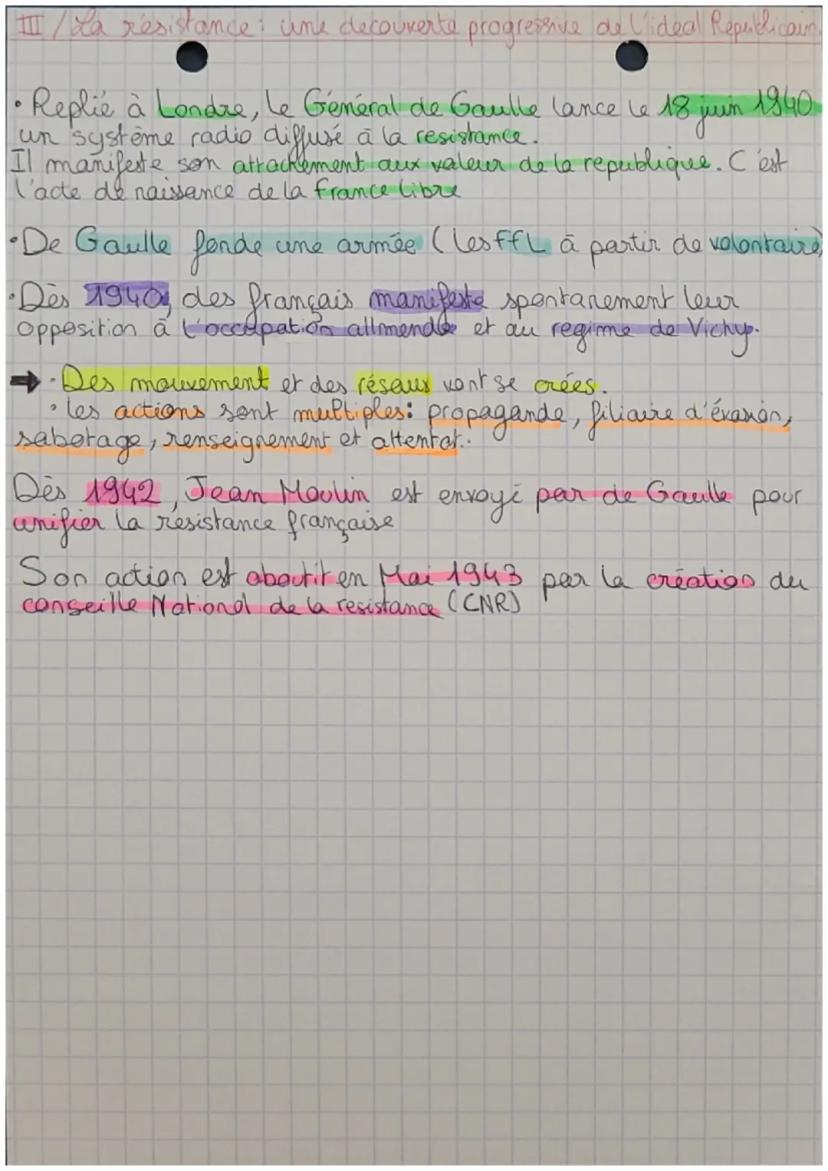 III / La résistance : une decouverte progressive de l'idéal Républicain.
• Replié à Londre, le Général de Gaulle lance le 18 juin 1940
un système radio diffusé à la resistance.
Il manifeste son attachement aux valeur de la republique. C'est
l'acte de naissance de la france libre
• De Gaulle fonde une armée (les ffL à partir de volontaire)
• Dès 1940, des français manifeste spontanement leur
opposition à l'occupation allmende et au regime de Vichy.
➡ • Des mouvement et des réseaus vont se crées.
• les actions sont multiples : propagande, filiaire d'évasion,
sabotage, renseignement et attentat.
Dès 1942, Jean Moulin est envoyé par de Gaulle pour
unifier la résistance française
Son action est aboutit en Mai 1943 par la création du
conseille National de la resistance (CNR)